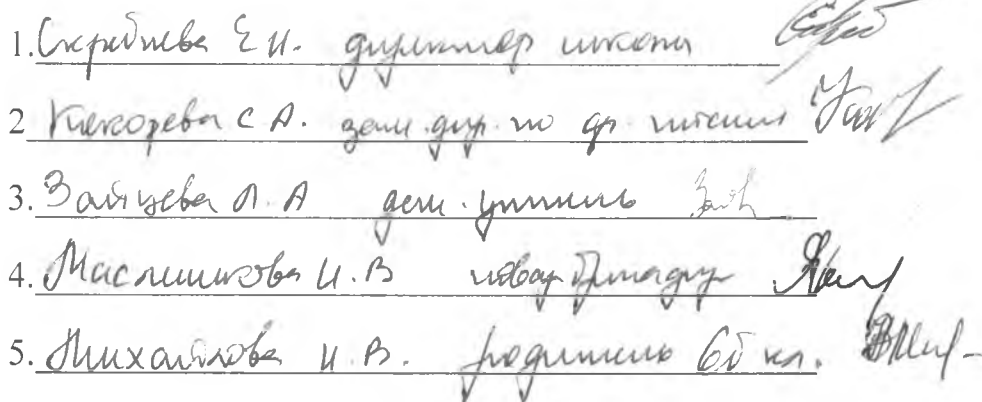 1. Скребнева Е И. директор школы
2 Кокорева С А. зам. дир. по питания
3. Зайцева Л. А учитель
4. Масленикова И. В повар бригадир
5. Михайлова И. В. родитель 6б кл.